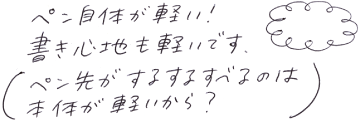 ペン自体が軽い!
書き心地も軽いです.
(ペン先がするするすべるのは
本体が軽いから?)